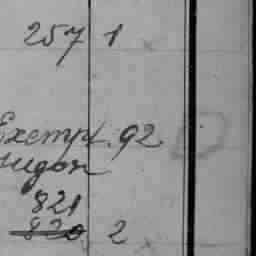 257 1
Exempl. 92
821
820 2